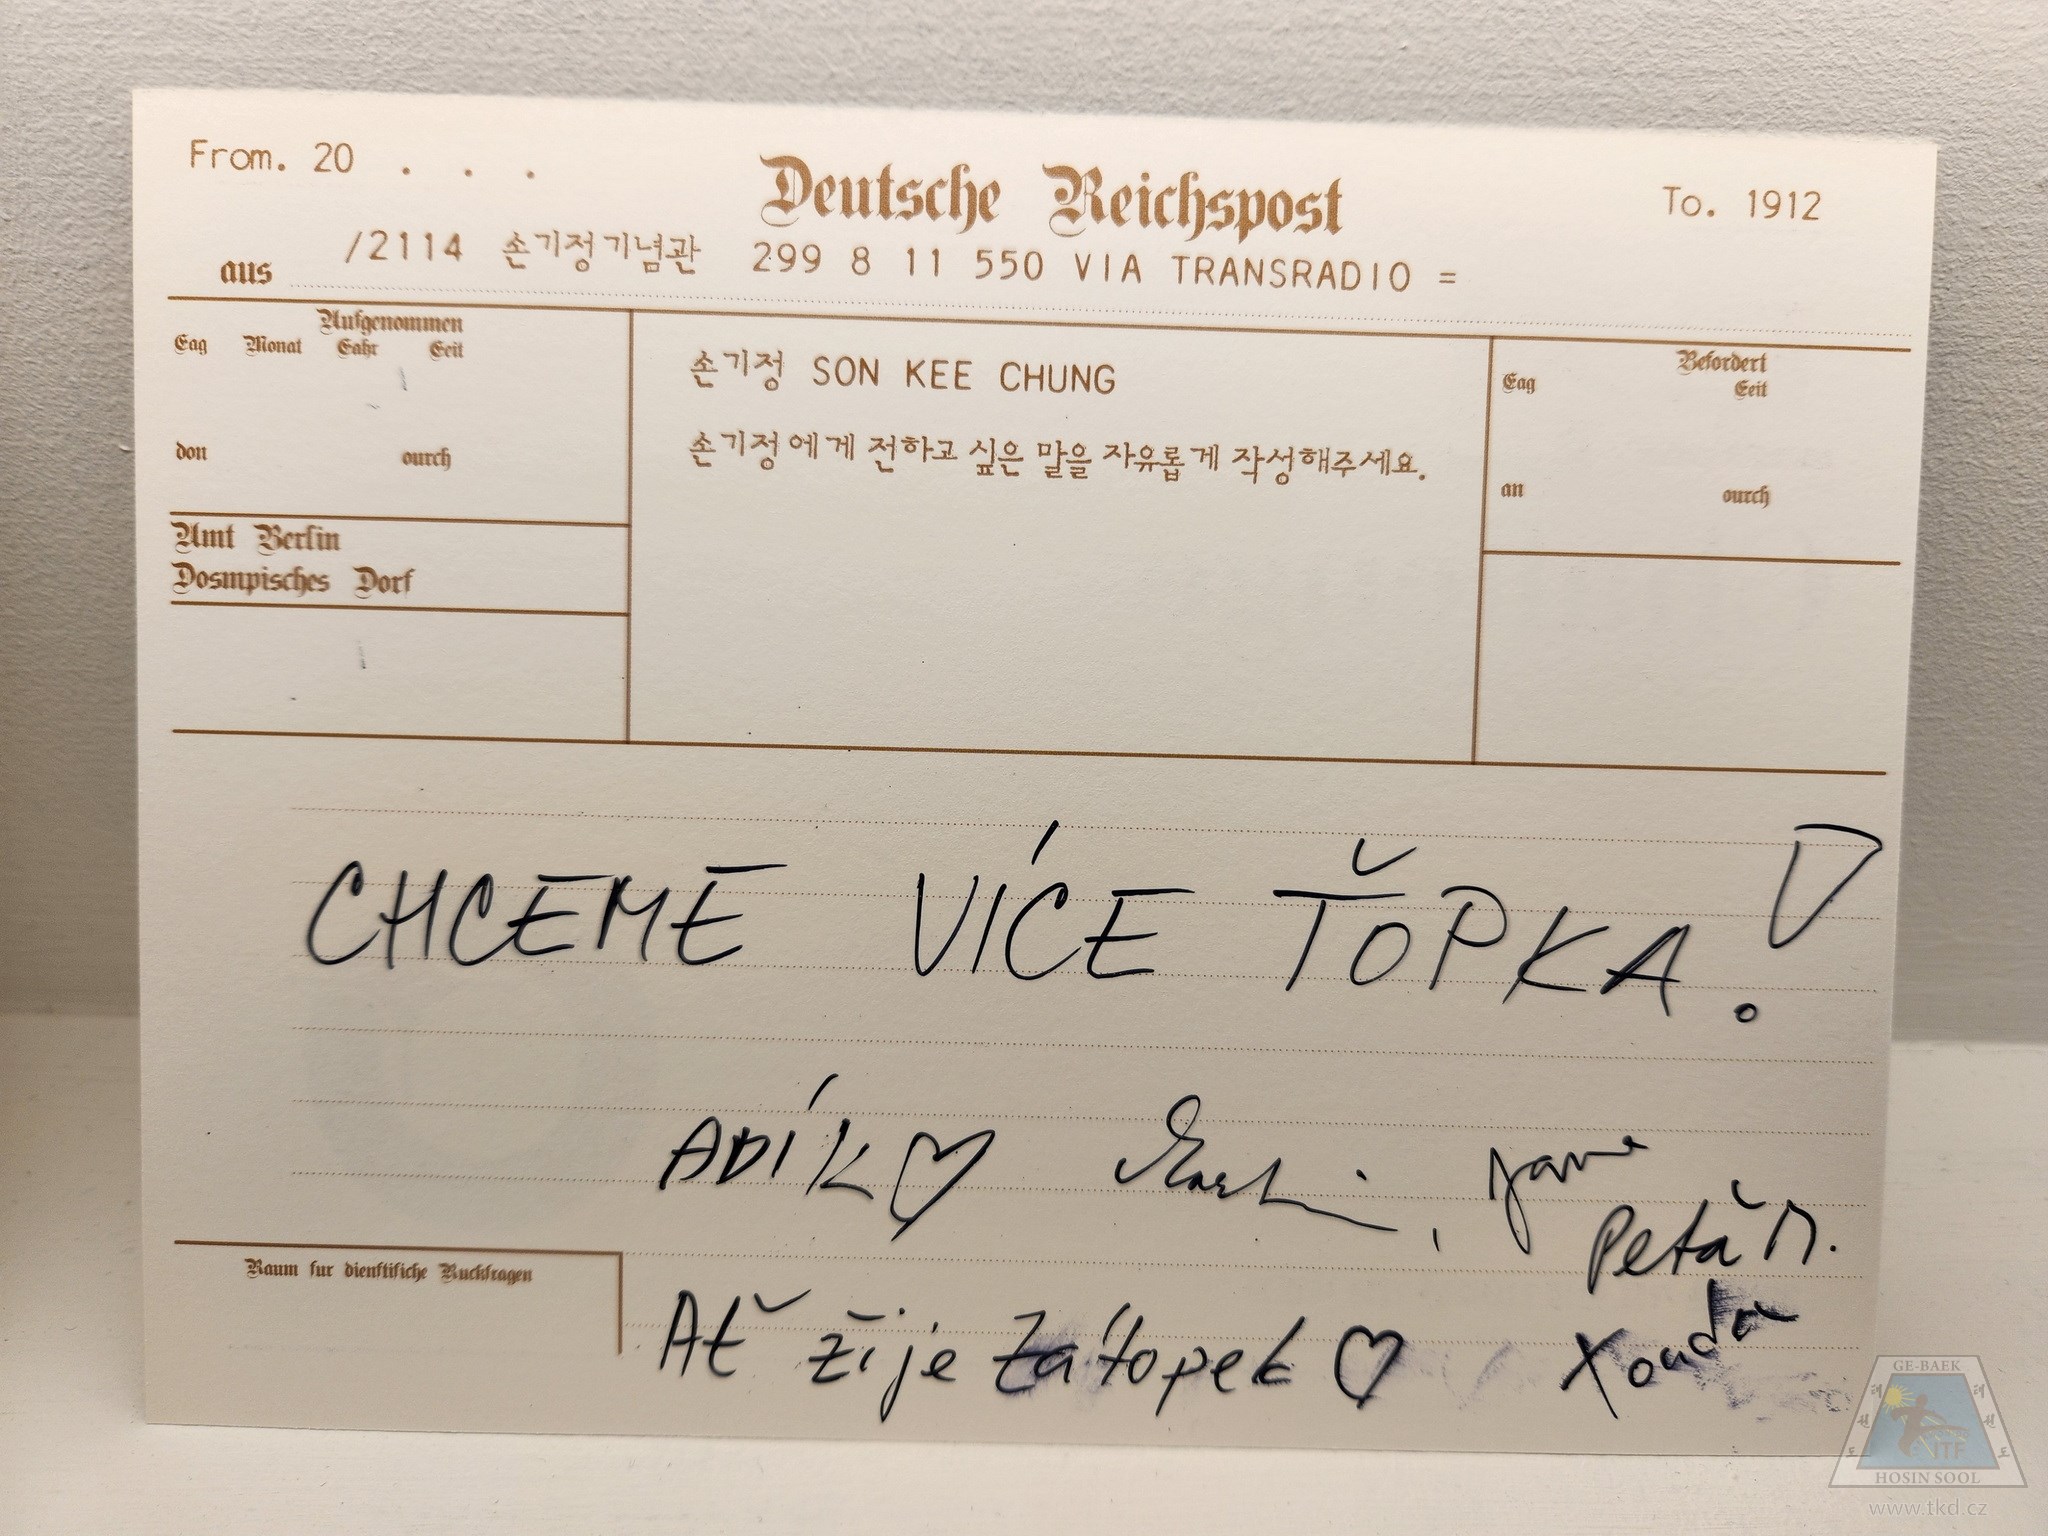 From. 20 . . .
Deutsche Reichspost
To. 1912
aus /2114 손기정기념관 299 8 11 550 VIA TRANSRADIO =
Aufgenommen
Eag Monat Eahr Eeit
don ourch
Amt Berlin
Dosmpisches Dorf
손기정 SON KEE CHUNG
손기정에게 전하고 싶은 말을 자유롭게 작성해주세요.
Befordert
Eag Eeit
an ourch
CHCEME VÍCE ŤOPKA!
ADÍK♡
Peťa M.
Raum fur dienftifiche Ruckfragen
Ať žije Zátopek ♡
GE-BAEK
태 태
권 권
도 도
ITF
HOSIN SOOL
www.tkd.cz